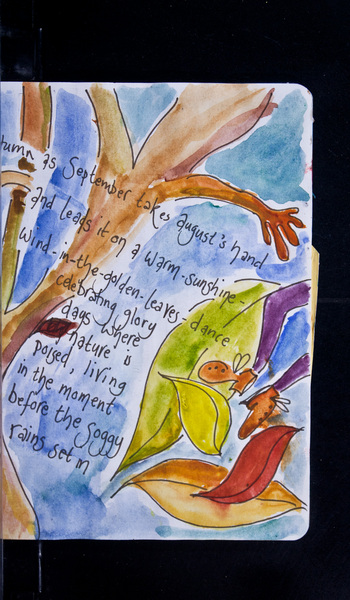 tumn as September takes august's hand
and leads it on a warm-sunshine-
wind-in-the-golden-leaves-dance
celebrating glory
days where
nature is
poised, living
in the moment
before the soggy
rains set in